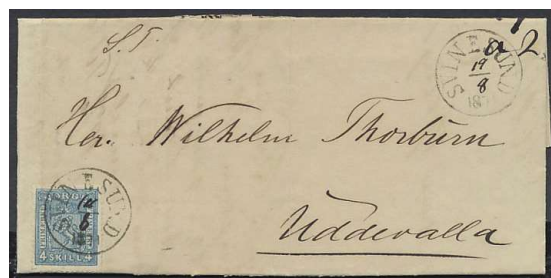 S. T.
a 2
SVINESUND
19
8
18
Herr Wilhelm Thorburn
Uddevalla
SVINESUND
4 SKILL 4